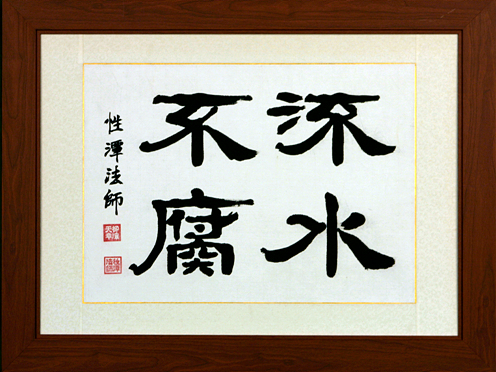 流水
不腐
性潭法師